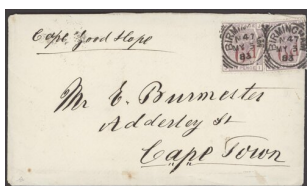 Cape Good Hope
BIRMINGHAM
47
MY 3
83
BIRMINGHAM
47
MY 3
83
Mr E. Burmester
Adderley St
Cape Town